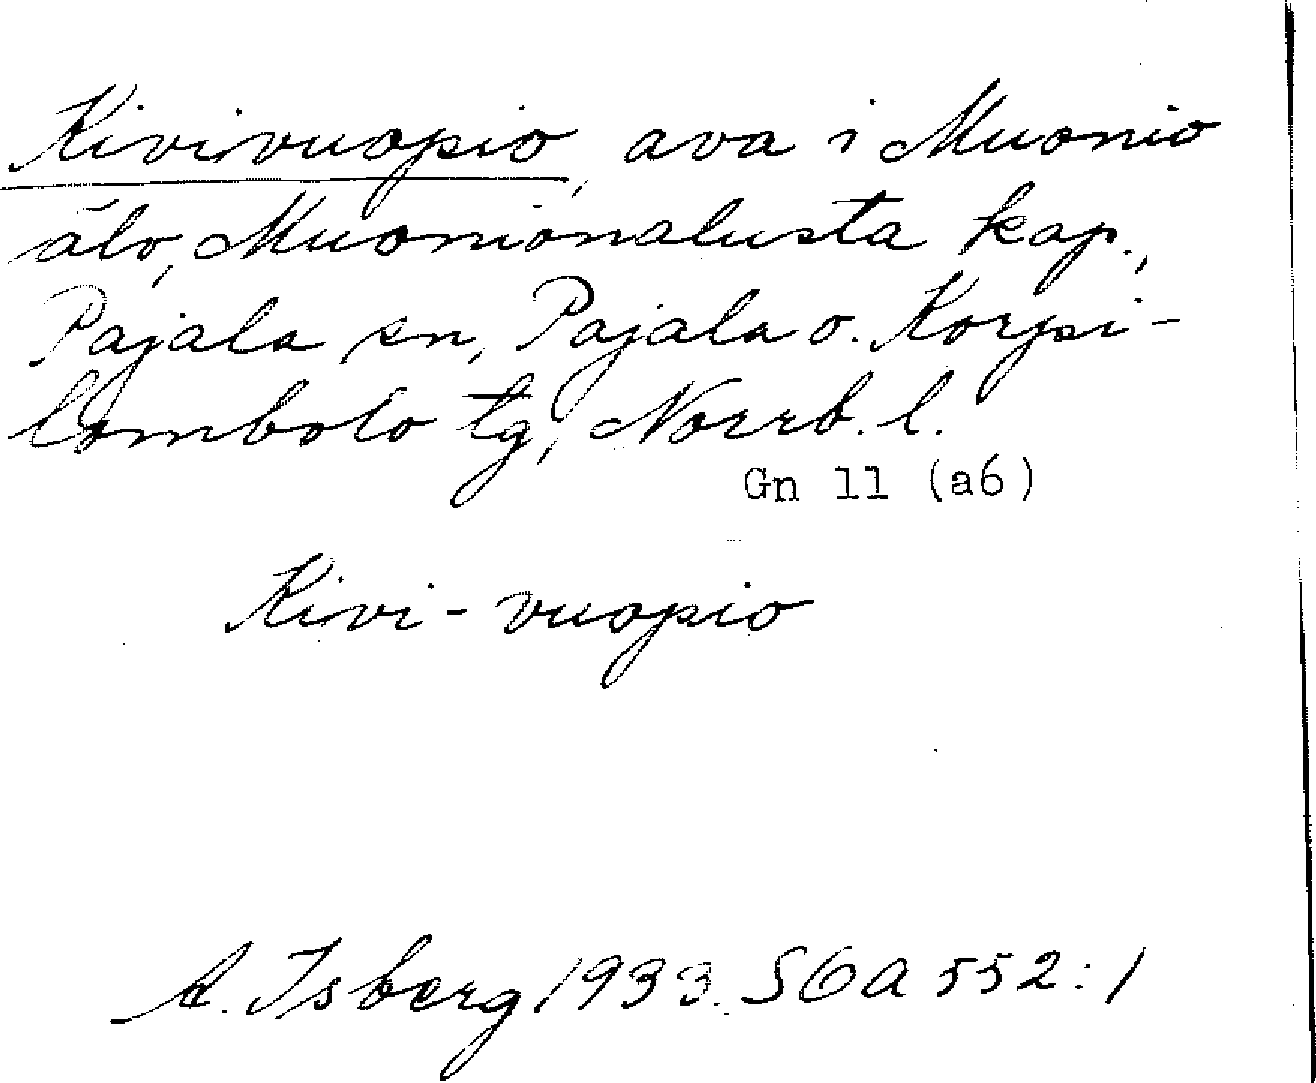 Kivivuopio, ava i Muonio
älv, Muonionalusta kap.,
Pajala sn, Pajala o. Korpi-
lombolo tg, Norrb. l.
Gn 11 (a6)
Kivi-vuopio
A. Isberg 1933. SOA 552:1